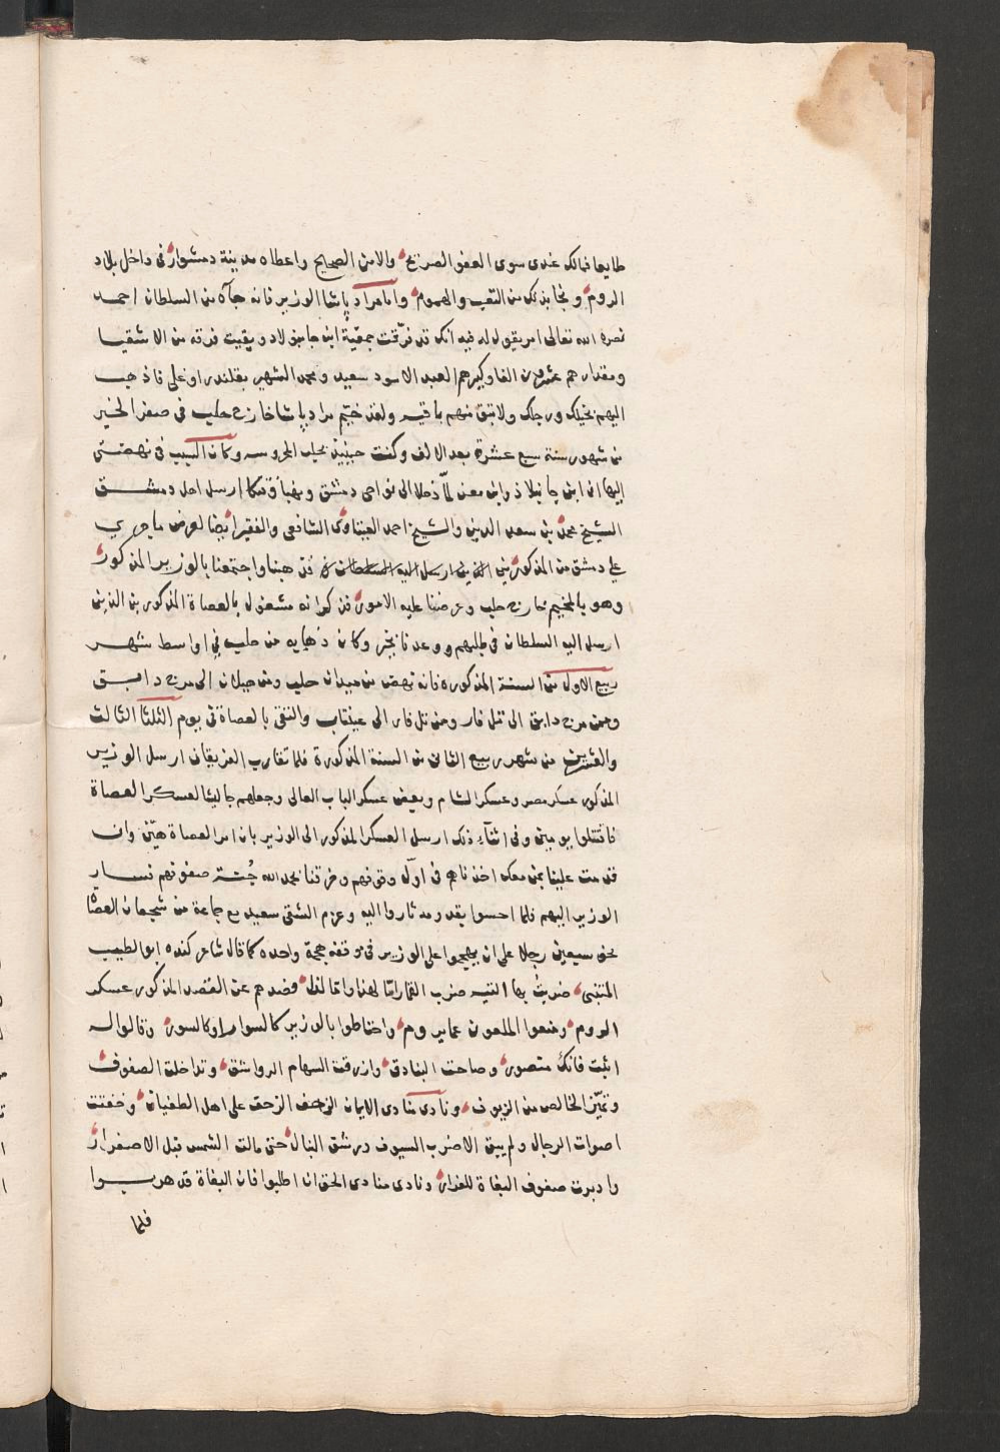 طايعا فمالك عندي سوى العفو الصريح والامن الصحيح واعطاه مدينة دمشوار في داخل بلاد
الروم ونجا بذلك من التعب والهموم واما مراد پاشا الوزير فانه جآه من السلطان احمد
نصره الله تعالى امر يقول له فيه انك قد فرّقت جمعيّة ابن جانبولاد وبقيت فرقه من الاشقيا
ومقدارهم عشرون الفا وكبيرهم العبد الاسود سعيد ومحمد الشهير بقلندر اوغلي فاذهب
اليهم بخيلك ورجلك ولا تبق منهم باقيه ولقد خيّم مراد پاشا خارج حلب في صفر الخير
من شهور سنة سبع عشرة بعد الالف وكنت حينئذ بحلب المحروسه وكان السبب في نهضتي
اليها ان ابن جانبلاذ وابن معن لمّا دخلا الى نواحي دمشق ونهبا وفتكا ارسل اهل دمشق
الشيخ محمد بن سعد الدين والشيخ احمد العيثاوى الشافعي والفقير ايضا لعرض ما جرى
على دمشق من المذكورين الذين ارسل اليه السلطان في فذهبنا واجتمعنا بالوزير المذكور
وهو بالمخيم خارج حلب وعرضنا عليه الامور فذكر انه مشغول بالعصاة المذكورين الذين
ارسل اليه السلطان في طلبهم ووعدنا بخير وكان ذهابه من حلب في اواسط شهر
ربيع الاول من السنة المذكوره فانه نهض من ميدان حلب ومن جيلان الى مرج دابق
ومن مرج دابق الى تل فار ومن تل فار الى عينتاب والتقى بالعصاة في يوم الثلثا الثالث
والعشرين من شهر ربيع الثاني من السنة المذكورة فلما تقارب الفريقان ارسل الوزير
المذكور عسكر مصر وعسكر الشام وبعض عسكر الباب العالي وجعلهم جاليشا لعسكر العصاة
فاقتتلوا يومين وفي اثنآء ذلك ارسل العسكر المذكور الى الوزير بان امر العصاة هيّن وان
قدمت علينا بمن معك اخذناهم في اوّل وقوفهم ومزقنا بحمد الله جُثة صفوفهم فسار
الوزير اليهم فلما احسوا بقدومه ثاروا اليه وعزم الشقي سعيد مع جماعة من شجعان العصاة
نحو سبعين رجلا على ان يهجموا على الوزير في موقفه هجمة واحده كما قال شاعر كنده ابو الطيب
المتنبي ضربتُ بها التيه ضرب القمار امّا لهذا وامّا لذا فصدهم عن القصد المذكور عسكر
الروم ومنعوا الملعون عما يروم واحتاطوا بالوزير كالسوار او كالسور وقالوا له
اثبت فانك منصور وصاحت البنادق وازرقت السهام الرواشق وتداخلت الصفوف
وتميّز الخالص من الزيوف ونادى منادى الايمان الزحف الزحف على اهل الطغيان وخفتت
اصوات الرجال ولم يبق الا ضرب السيوف ورشق النبال حتى مالت الشمس قبل الاصفرار
وادبرت صفوف البغاة للفرار ونادى منادى الحق ان اطلبوا فان البغاة قد هربوا
فلما